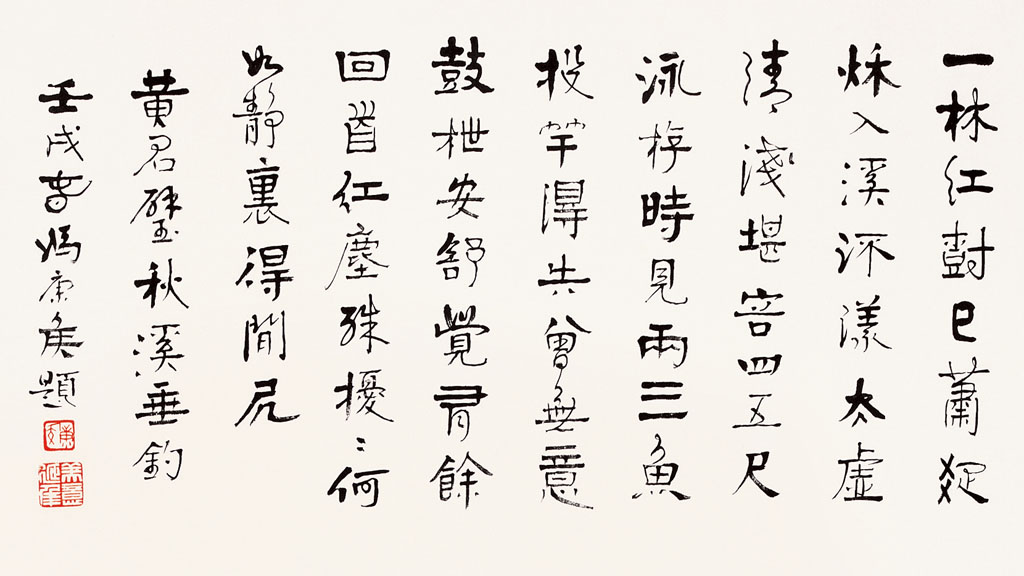 一林紅尌已蕭疏
秌入溪流漾太虛
清淺堪容四五尺
泳游時見兩三魚
投竿得失曾無意
鼓枻安舒覺有餘
回首紅塵殊擾〻何
如靜裏得閒居
黃君璧秋溪垂釣
壬戌春馮康侯題